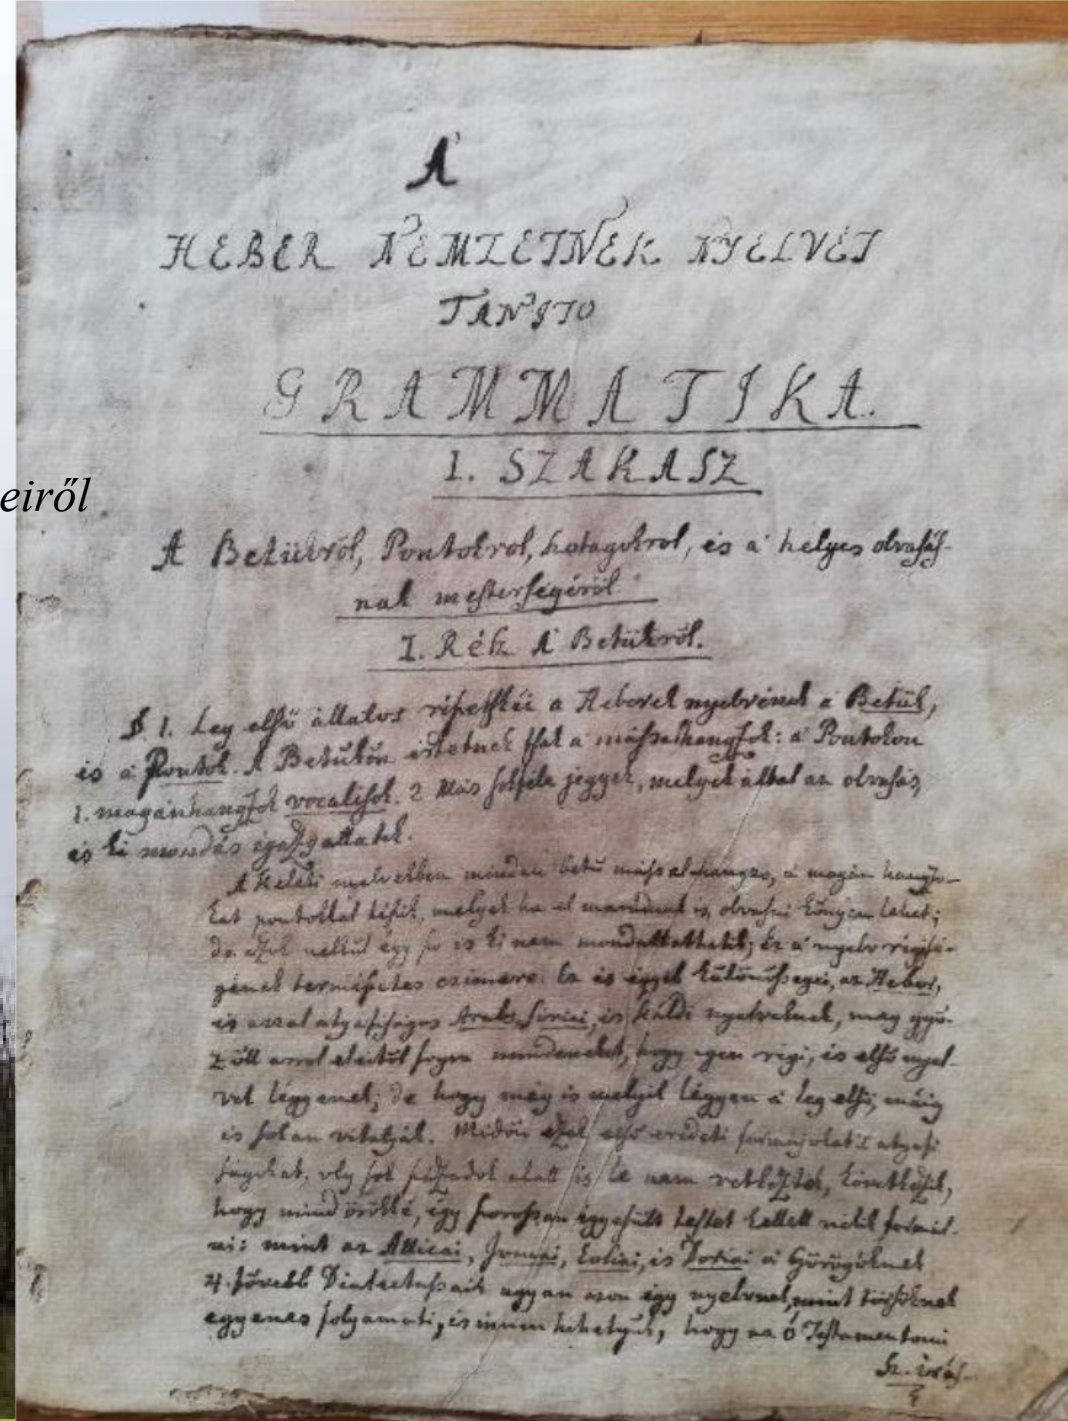 eiről
A'
HEBER NEMZETNEK NYELVÉT
TANITO
GRAMMATIKA.
1. SZAKASZ
A Betükről, Pontokrol, hotagokrol, és a' helyes olvasás-
nak mesterségéröl
I. Rész A' Betükről.
§ 1. Leg elsü állatos részetskéi a Heberek nyelvének a Betük,
és a Pontok. A Betükön értetnek tsak a' mássalhangzok: a' Pontokon
1. magánhangzok vocalisok. 2 Más sokféle jegyek, melyek által az olvasás,
és ki mondás igazgattatik.
nyelvekben minden betü mássalhangzo, a' magán hangzo-
kat pontokkal olvasni könyen lehet;
de ezek nélkül egy is ki nem mondattathatik; Ez a' nyelv régisé-
gének természetes czimere. Ez is egyik külömössegei, az Heber,
és azzal atyafiságos Arabs, Siriai, és Káldi nyelveknek, mely gyö-
zött arrol eleitül fogva mindeneket, hogy igen régi, és elsö nyel-
vek légyenek; de hogy még is melyik légyen a' leg elsö, máig
is sokan vitatják. Midön ezek elsö eredeti formájokat 's atyafi
ságokat, oly sok századok alatt is le nem vetkőzték, következik,
hogy mind örökké, egy szorossan egyesült testet kellett nékik formál-
ni: mint az Atticai, Joniai, Eoliai, és Doriai a' Görögöknek
4. Dialectussaik ugyan azon egy nyelvnek, mint törsöknek
egyenes folyamati, és innen hihetjük, hogy az Ó Testamentomi
Sz. Irás-